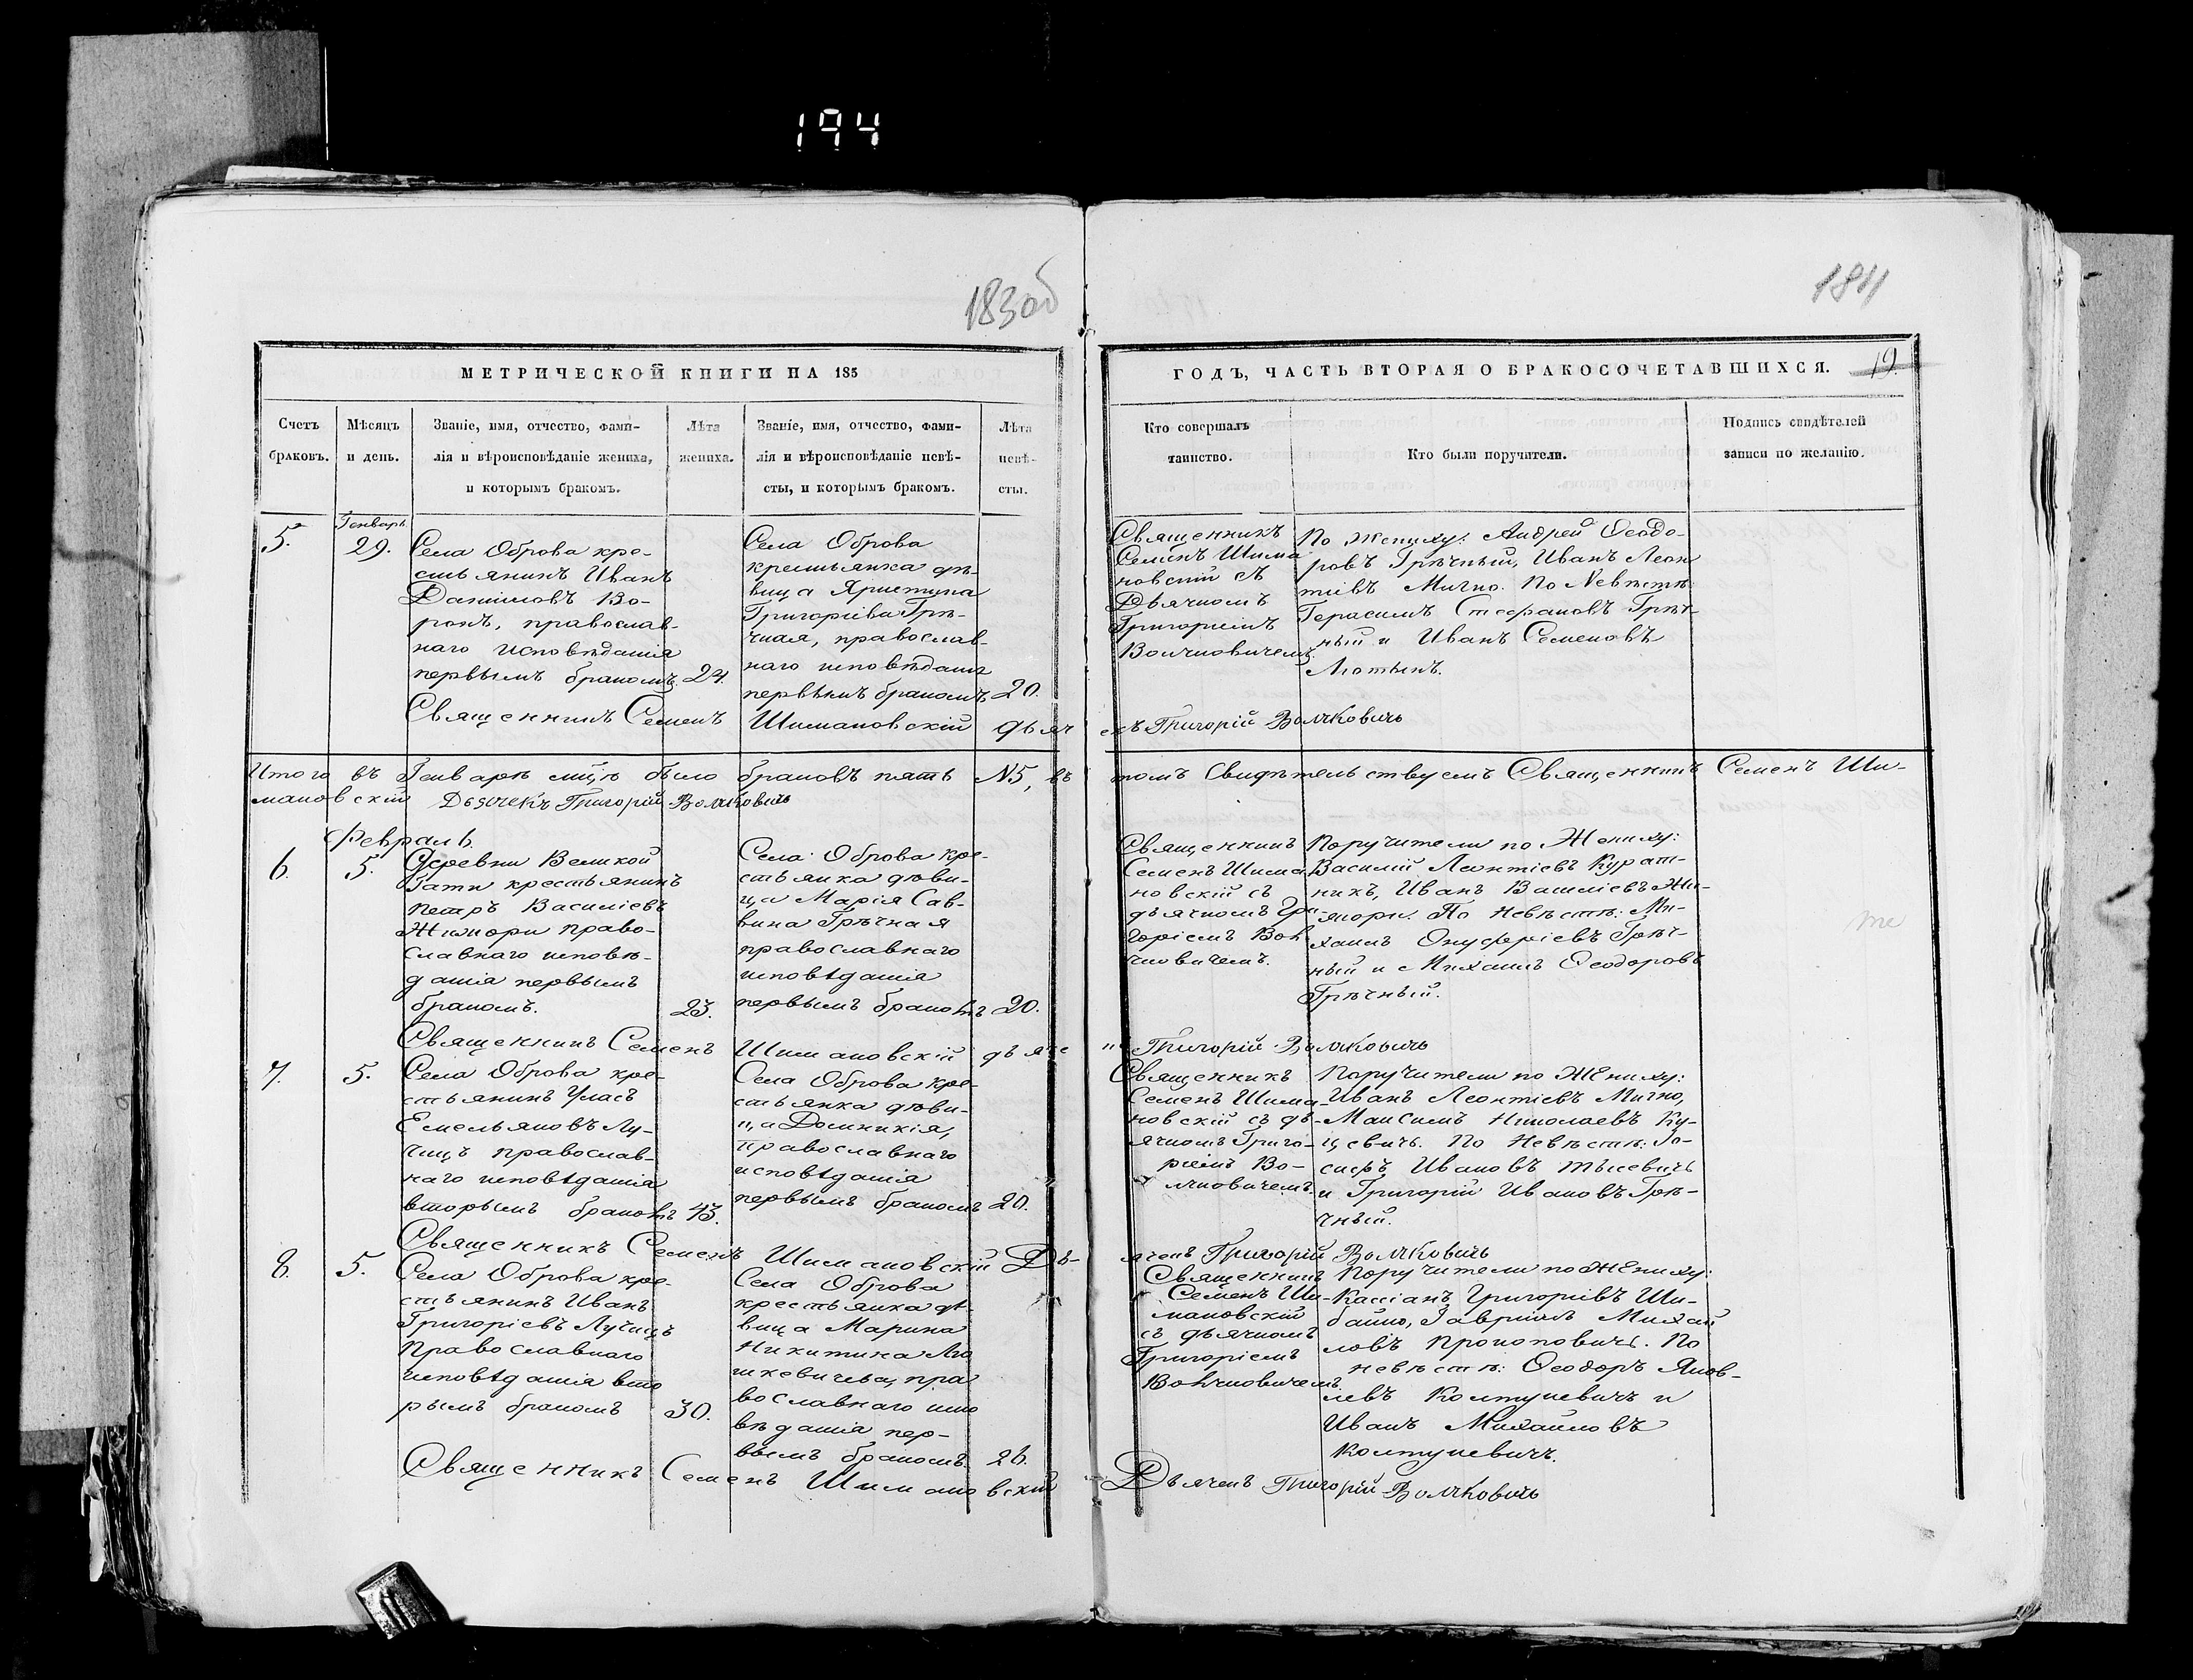 194
183об
184
МЕТРИЧЕСКОЙ КНИГИ НА 185
ГОДЪ, ЧАСТЬ ВТОРАЯ О БРАКОСОЧЕТАВШИХСЯ.
19.
Счетъ
браковъ.
Мѣсяцъ
и день.
Званіе, имя, отчество, фами-
лія и вѣроисповѣданіе жениха,
и которымъ бракомъ.
Лѣта
жениха.
Званіе, имя, отчество, фами-
лія и вѣроисповѣданіе невѣ-
сты, и которымъ бракомъ.
Лѣта
невѣ-
сты.
Кто совершалъ
таинство.
Кто были поручители.
Подпись свидѣтелей
записи по желанію.
5.
Генварь
29.
Села Оброва кре-
стьянинъ Иванъ
Даниловъ Во-
ронъ, православ-
наго исповѣданія
первымъ бракомъ.
24.
Села Оброва
крестьянка дѣ-
вица Христина
Григоріева Грѣ-
чная, православ-
наго исповѣданія
первымъ бракомъ.
20.
Священникъ
Семенъ Шима
новскій съ
Дьячкомъ
Григоріемъ
Волчковичемъ.
По Жениху: Андрей Ѳеодо-
ровъ Грѣчный, Иванъ Леон
тіевъ Мичко. По Невѣстѣ:
Герасимъ Стефановъ Грѣч-
ный и Иванъ Семеновъ
Лютынъ.
Священникъ Семенъ Шимановскій дьяч
екъ Григорій Волчковичь
Итого въ Генварѣ мцѣ было браковъ пять N5, въ
томъ Свидѣтельствуемъ Священникъ Семенъ Ши-
мановскій Дьячекъ Григорій Волчковичь
Февраль.
6.
5.
Деревни Великой
Гати крестьянинъ
Петръ Василіевъ
право-
славнаго исповѣ-
данія первымъ
бракомъ.
23.
Села Оброва кре-
стьянка дѣви-
ца Марія Сав-
вина Грѣчная
православнаго
исповѣданія
первымъ бракомъ
20.
Священникъ
Семенъ Шима
новскій съ
дьячкомъ Гри-
горіемъ Вол
чковичемъ.
Поручители по Жениху:
Василій Леонтіевъ Курат-
никъ, Иванъ Василіевъ
По Невѣстѣ: Ми-
хаилъ Онуфріевъ Грѣч-
ный и Михаилъ Ѳеодоровъ
Грѣчный.
Священникъ Семенъ Шимановскій дьяче
къ Григорій Волчковичь
7.
5.
Села Оброва кре-
стьянинъ Уласъ
Емельяновъ Лу-
чицъ православ-
наго исповѣданія
вторымъ бракомъ
43.
Села Оброва кре-
стьянка дѣви-
ца Домникія,
православнаго
исповѣданія
первымъ бракомъ
20.
Священникъ
Семенъ Шима-
новскій съ дь-
ячкомъ Григо-
ріемъ Во-
лчковичемъ.
Поручители по Жениху:
Иванъ Леонтіевъ Мичко,
Максимъ Николаевъ Ку-
цевичъ. По Невѣстѣ: Іо-
сифъ Ивановъ
и Григорій Ивановъ Грѣ-
чный.
Священникъ Семенъ Шимановскій Дь-
ячекъ Григорій Волчковичь
8.
5.
Села Оброва кре-
стьянинъ Иванъ
Григоріевъ Лучицъ
православнаго
исповѣданія вто
рымъ бракомъ
30.
Села Оброва
крестьянка дѣ-
вица Марина
Никитина
пра
вославнаго испо
вѣданія пер-
вымъ бракомъ.
26.
Священникъ
Семенъ Ши-
мановскій
съ дьячкомъ
Григоріемъ
Волчковичемъ.
Поручители по Жениху:
Кассіанъ Григоріевъ Ши-
Гавріилъ Михай
ловъ Прокоповичъ. По
невѣстѣ: Ѳеодоръ Яков-
левъ Колтуневичъ и
Иванъ Михайловъ
Колтуневичъ.
Священникъ Семенъ Шимановскій
Дьячекъ Григорій Волчковичь